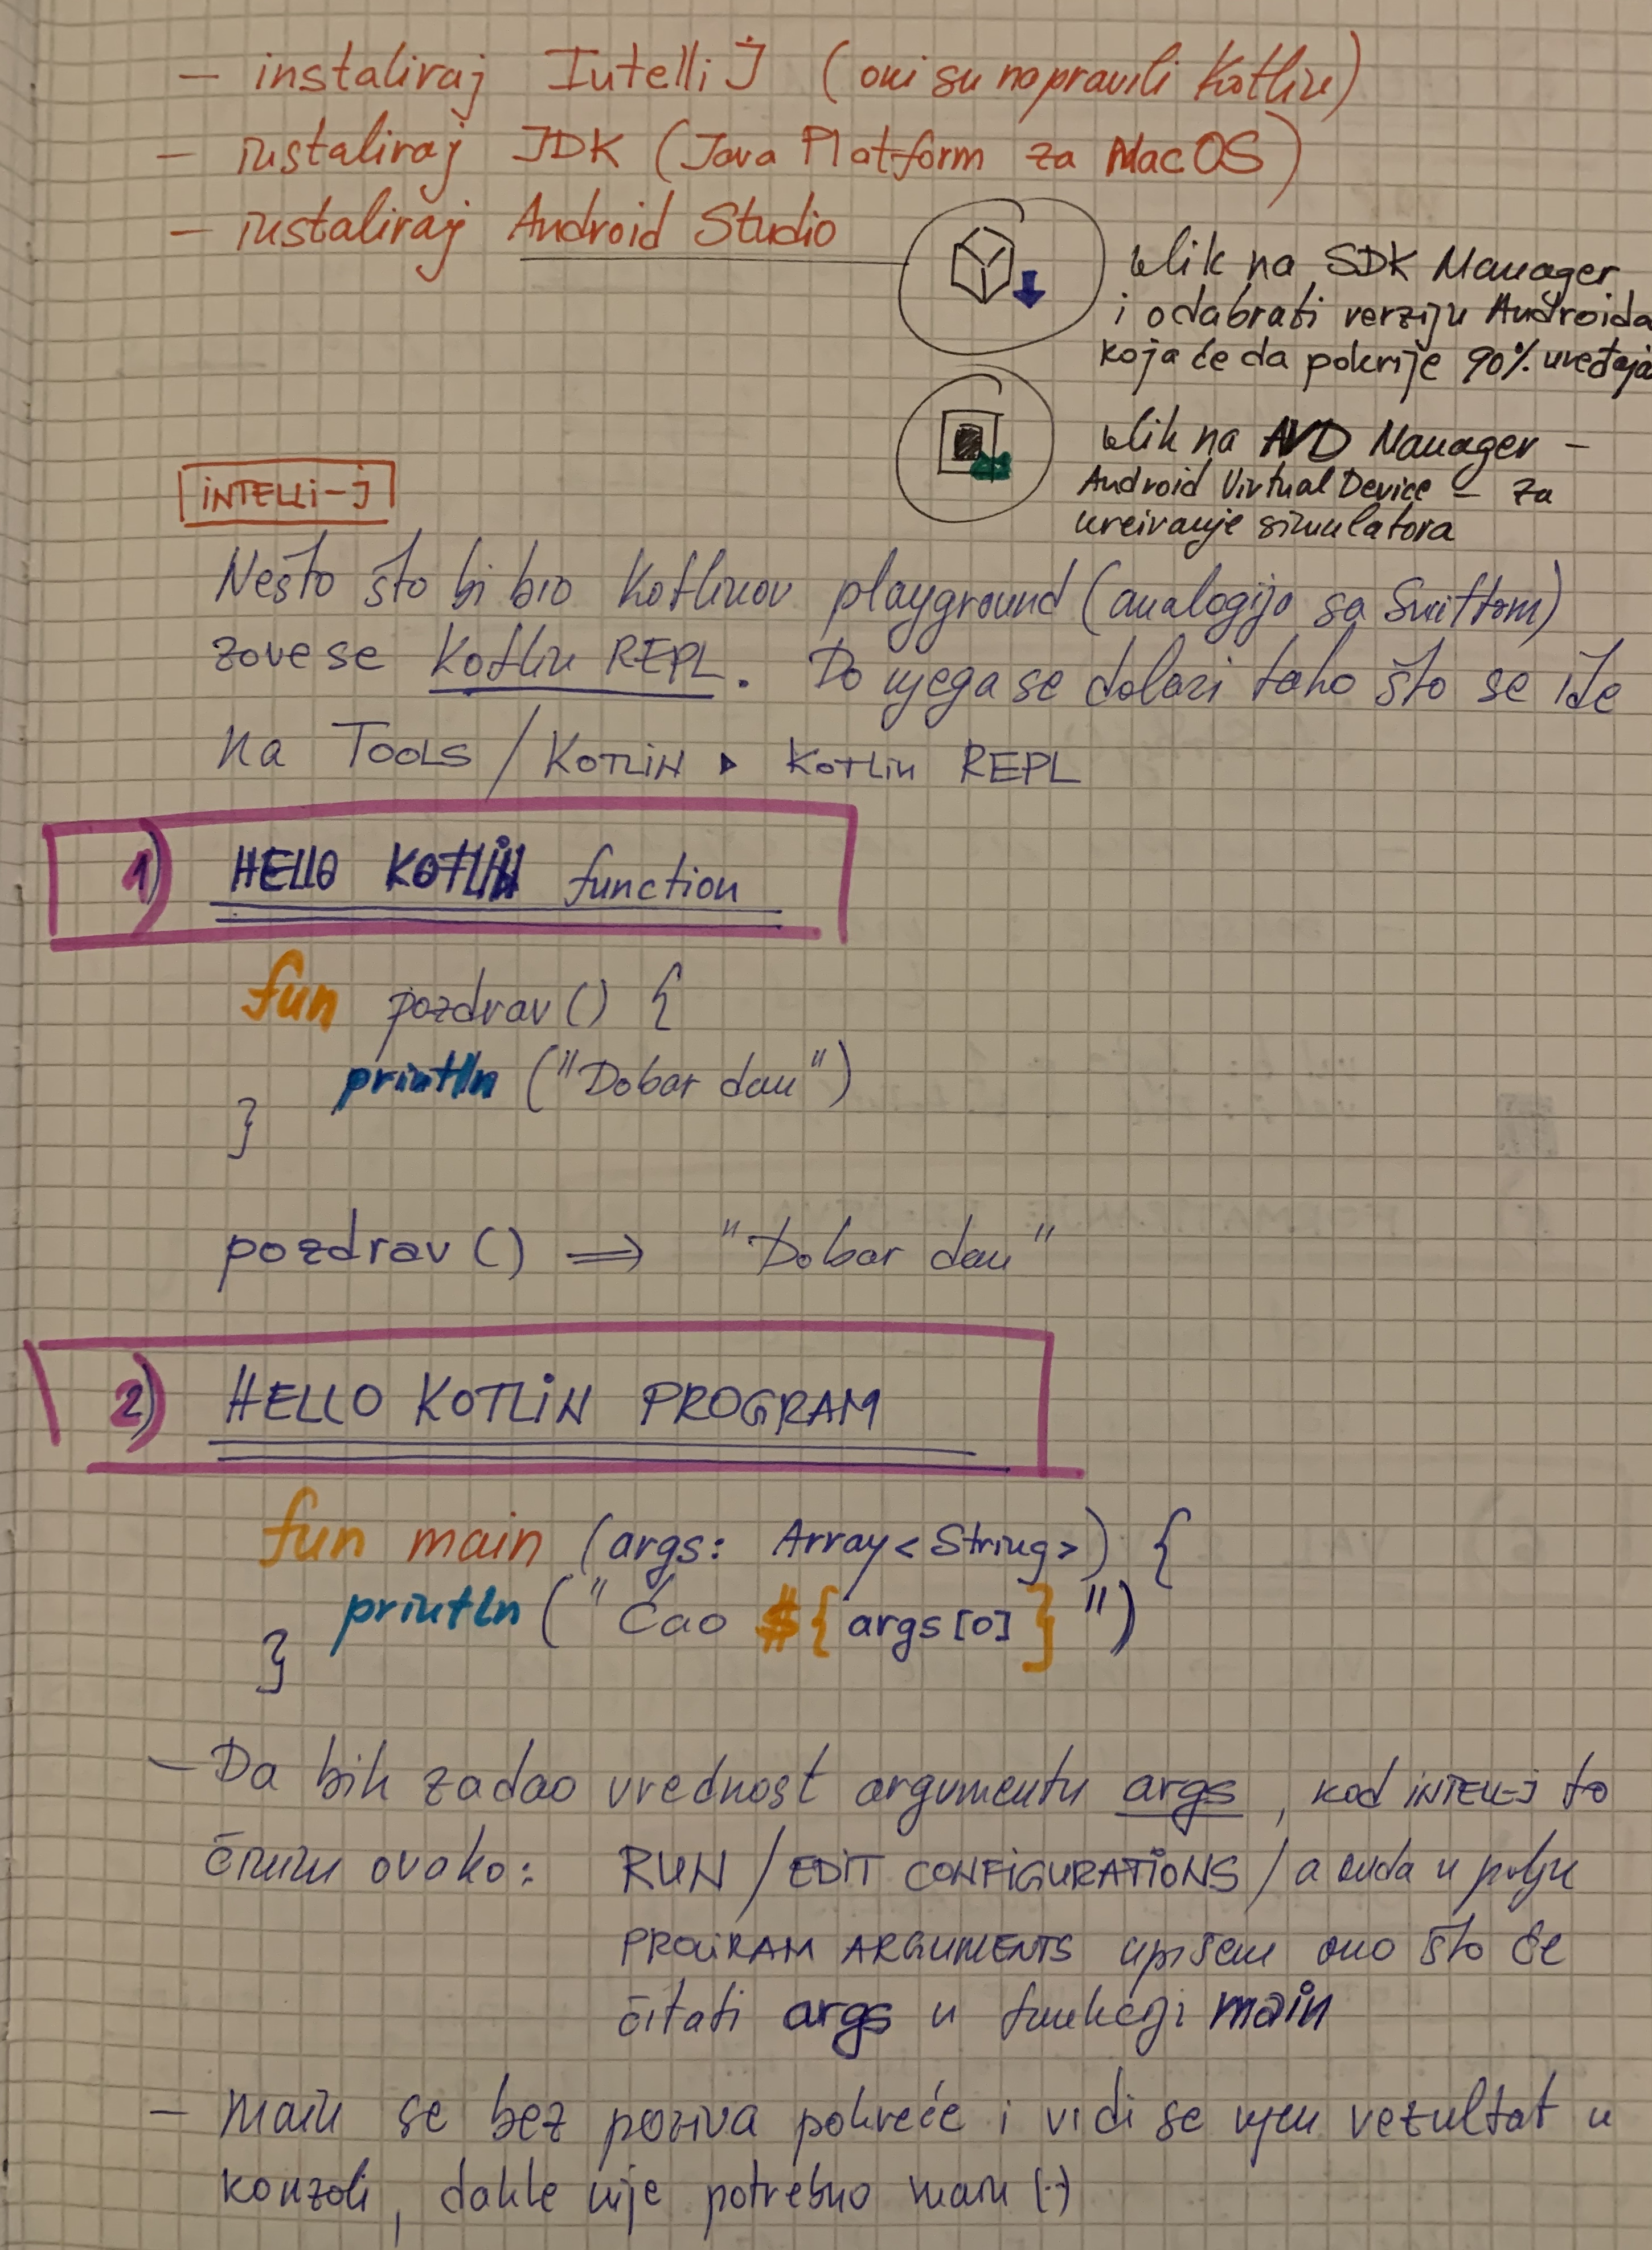 - instaliraj IntelliJ (oni su napravili Kotlin)
- instaliraj JDK (Java Platform za MacOS)
- instaliraj Android Studio
klik na SDK Manager
i odabrati verziju Androida
koja će da pokrije 90% uređaja
klik na AVD Manager -
Android Virtual Device - za
kreiranje simulatora
INTELLI-J
Nešto što bi bio Kotlinov playground (analogija sa Swiftom)
zove se Kotlin REPL. Do njega se dolazi tako što se ide
na TOOLS / KOTLIN ▸ Kotlin REPL
1) HELLO KOTLIN function
fun pozdrav () {
println ("Dobar dan")
}
pozdrav () ⟹ "Dobar dan"
2) HELLO KOTLIN PROGRAM
fun main (args: Array<String>) {
println ("Ćao ${args[0]}")
}
- Da bih zadao vrednost argumentu args, kod INTELL-J to
činim ovako: RUN / EDIT CONFIGURATIONS / a onda u polju
PROGRAM ARGUMENTS upišem ono što će
čitati args u funkciji main
- main se bez poziva pokreće i vidi se njen rezultat u
konzoli, dakle nije potrebno main (..)